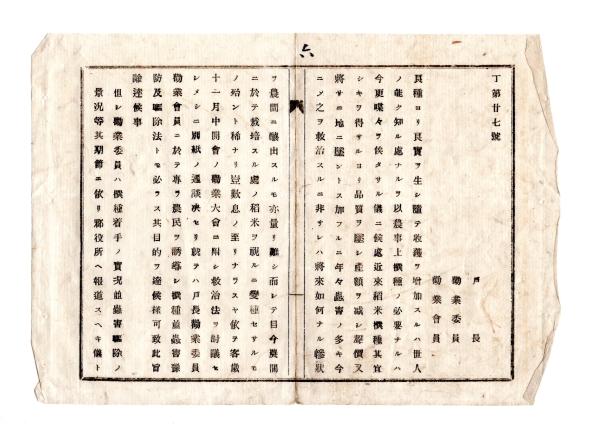 六
丁第廿七號
戸長
勸業委員
勸業會員
良種ヨリ良實ヲ生シ隨テ收獲ヲ增加スルハ世人
ノ能ク知ル處ナルヲ以農事上撰種ノ必要ナルハ
今更喋々ヲ俟タサル儀ニ候處近來稻米撰種其宜
シキヲ得サルヨリ品質ヲ墜シ產額ヲ减シ聲價又
將サニ地ニ墜ントス加フルニ年々蟲害ノ多キ今
ニメ之ヲ救治スルニ非サレハ將來如何ナル慘狀
ヲ農間ニ釀出スルモ亦量リ難シ而レテ目今莫間
ニ於テ栽培スル處ノ稻米ヲ視ルニ變種セサルモ
ノ殆ント稀ナリ豈歎息ノ至リナラスヤ依テ客歲
十一月中開會ノ勸業大會ニ附シ救治法ヲ討議セ
レメシニ別紙ノ通議决セリ就テハ戸長勸業委員
勸業會員ニ於テ專ラ農民ヲ誘導シ撰種並蟲害豫
防及驅除法トモ必ラス其目的ヲ達候樣可致此旨
諭達候事
但レ勸業委員ハ撰種着手ノ實况並蟲害驅除ノ
景况等其期節ニ依リ郡役所ヘ報道スヘキ儀ト